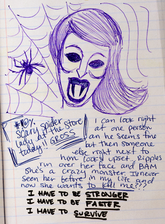 #1%
scary spider
lady at the store
today!! GROSS
I can look right
at one person
and he seems fine
but then someone
else right next to
him looks upset. Ripples
run over her face and BAM
She's a crazy monster I never
seen her before in my life and
now she wants to kill me???
I HAVE TO BE STRONGER
I HAVE TO BE FASTER
I HAVE TO SURVIVE